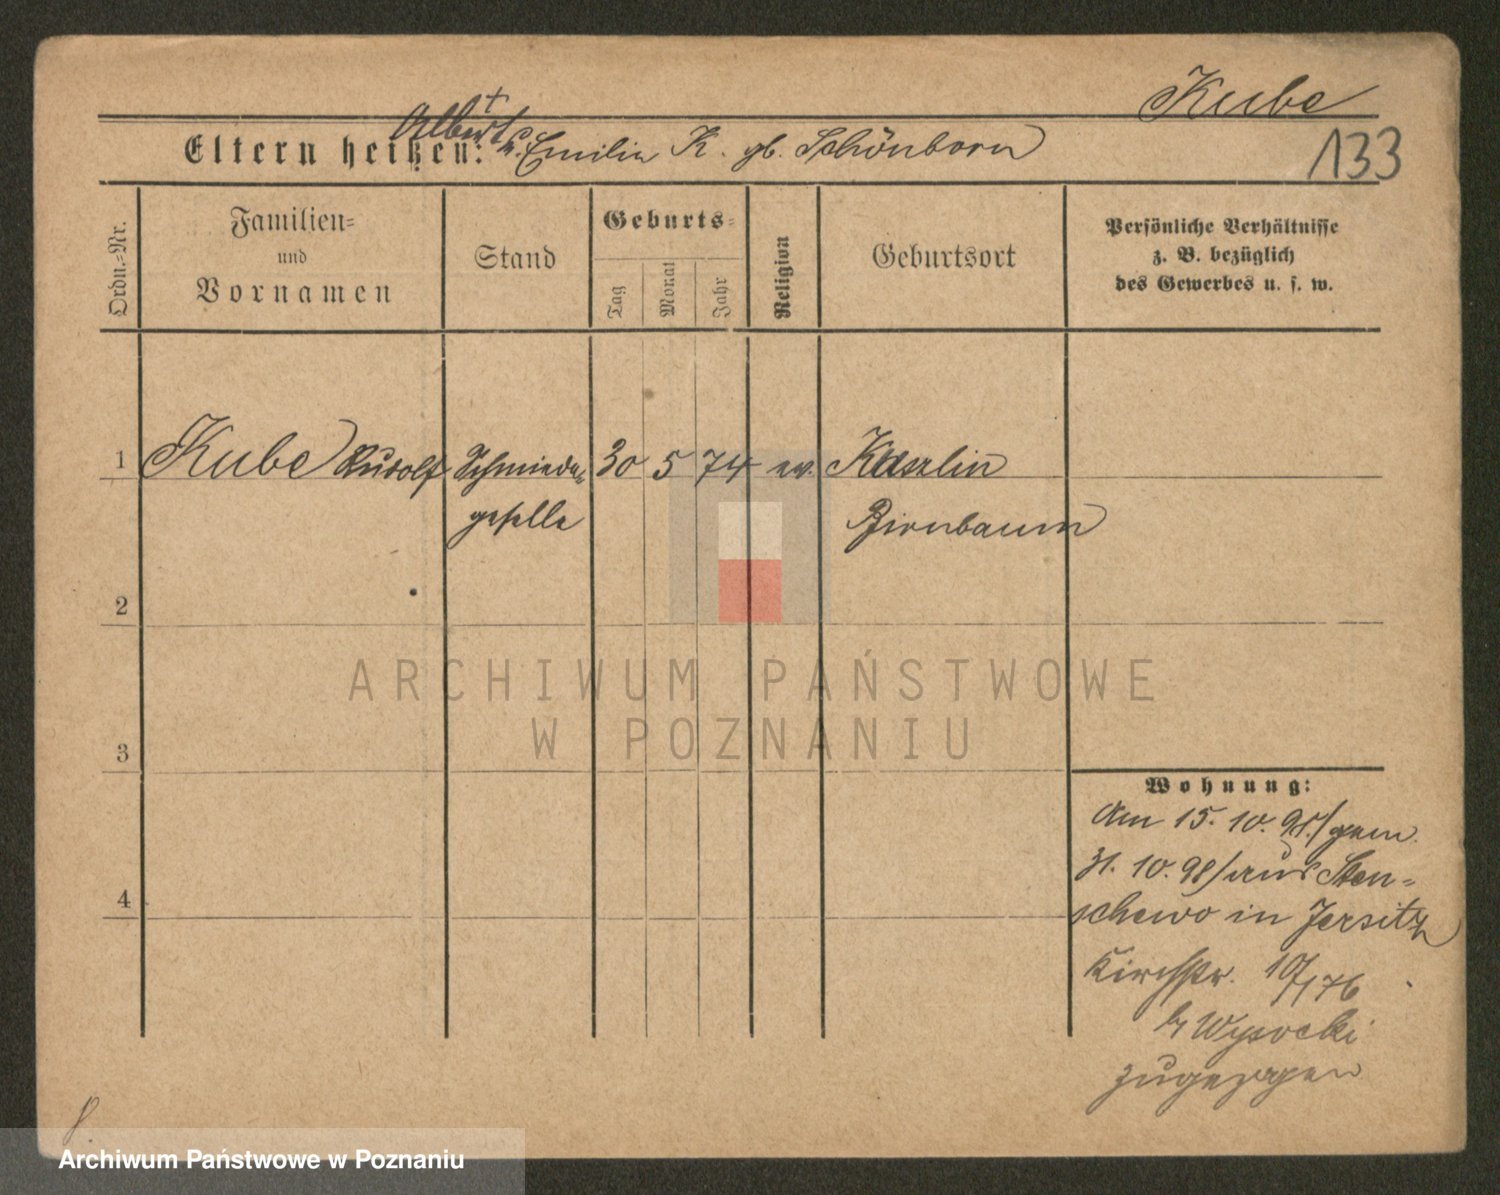 Kube
133
Albert +
Eltern heißen: u. Emilie K. gb. Schönborn
Ordn.-Nr.
Familien-
und
Vornamen
Stand
Geburts-
Tag
Monat
Jahr
Religion
Geburtsort
Persönliche Verhältnisse
z. B. bezüglich
des Gewerbes u. s. w.
1 Kube Rudolf Schmiede- 30 5 74 ev.
geselle Birnbaum
2
ARCHIWUM PAŃSTWOWE
W POZNANIU
3
4
Wohnung:
Am 15. 10. 98/gem.
31. 10. 98/aus Sten-
schewo in Jersitz
Kirchstr. 10/176
b/ Wysocki
zugezogen
Archiwum Państwowe w Poznaniu